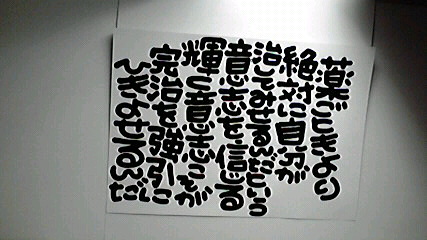 薬ごときより
絶対に自分が
治してみせるんだという
意志を信じる
輝く意志こそが
完治を強引に
ひきよせるんだ